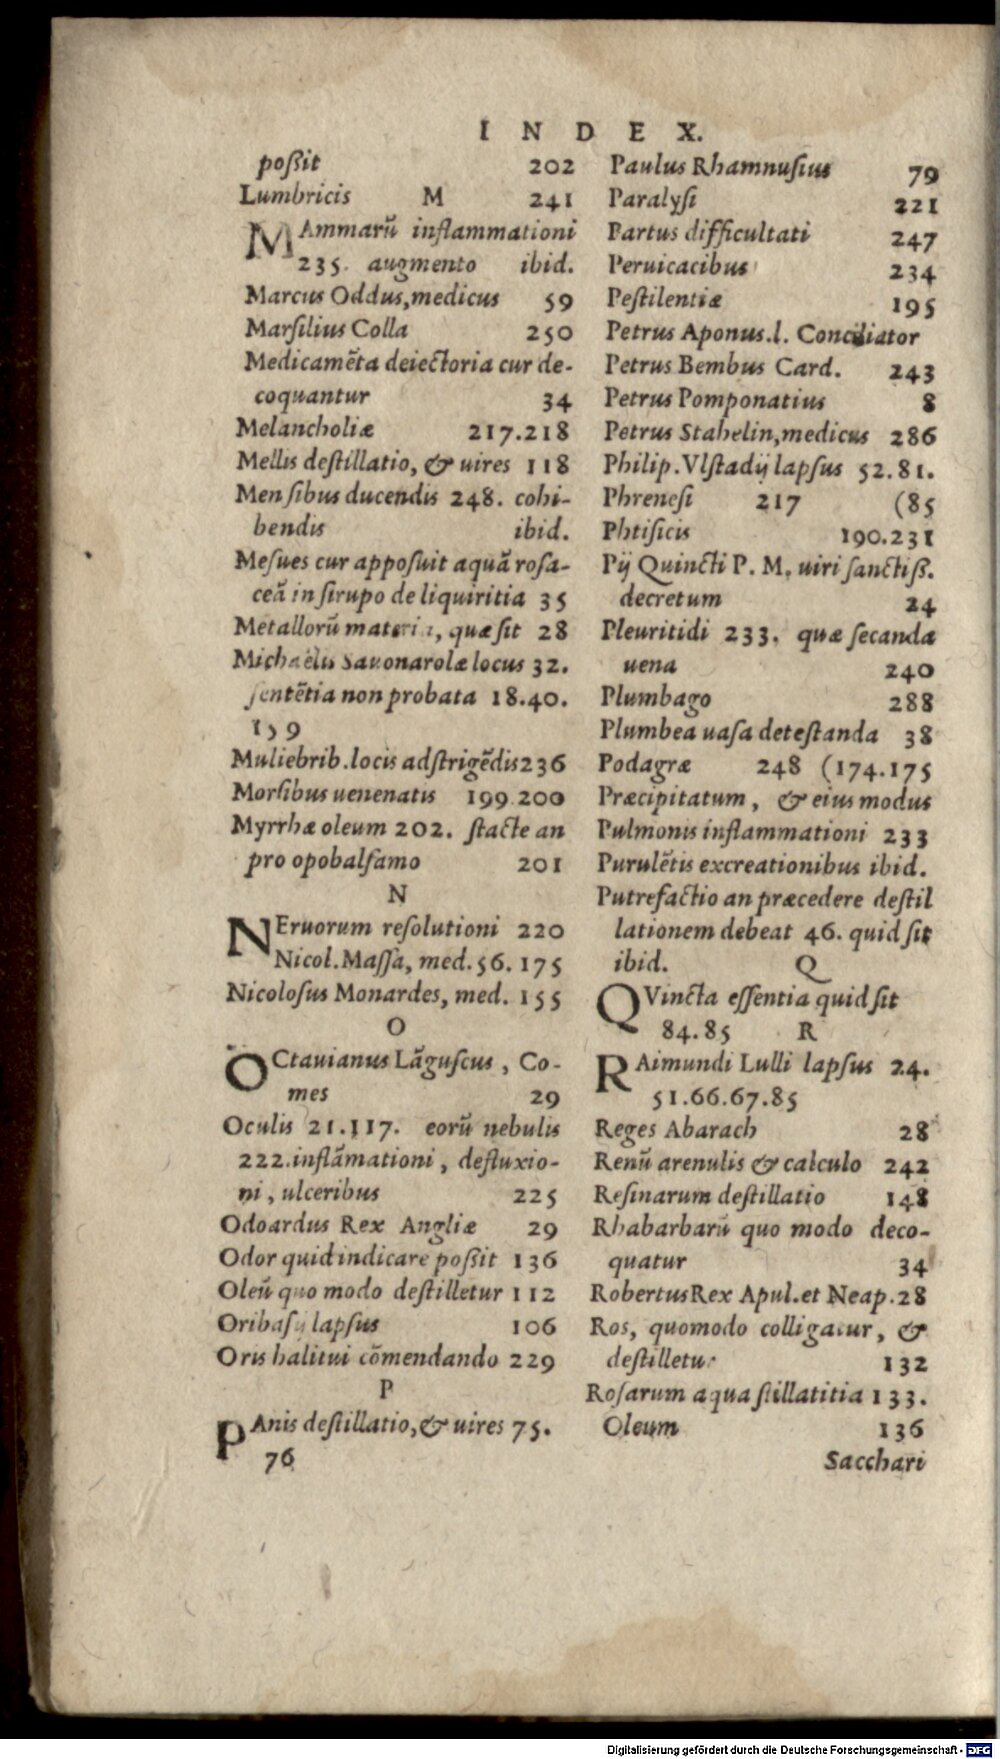 INDEX.
poßit 202
Lumbricis M 241
MAmmarũ inflammationi
235. augmento ibid.
Marcus Oddus, medicus 59
Marſilius Colla 250
Medicamẽta deiectoria cur de-
coquantur 34
Melancholiæ 217.218
Mellis deſtillatio, & uires 118
Menſibus ducendis 248. cohi-
bendis ibid.
Meſues cur appoſuit aquã roſa-
ceã in ſirupo de liquiritia 35
Metallorũ materia, quæ ſit 28
Michaëlis Sauonarolæ locus 32.
ſentẽtia non probata 18.40.
159
Muliebrib. locis adſtrigẽdis 236
Morſibus uenenatis 199.200
Myrrhæ oleum 202. ſtacte an
pro opobalſamo 201
N
NEruorum reſolutioni 220
Nicol. Maſſa, med. 56.175
Nicoloſus Monardes, med. 155
O
OCtauianus Lãguſcus, Co-
mes 29
Oculis 21.117. eorũ nebulis
222. inflãmationi, defluxio-
ni, ulceribus 225
Odoardus Rex Angliæ 29
Odor quid indicare poßit 136
Oleũ quo modo deſtilletur 112
Oribaſij lapſus 106
Oris halitui cõmendando 229
P
PAnis deſtillatio, & uires 75.
76
Paulus Rhamnuſius 79
Paralyſi 221
Partus difficultati 247
Peruicacibus 234
Peſtilentiæ 195
Petrus Aponus. l. Conciliator
Petrus Bembus Card. 243
Petrus Pomponatius 8
Petrus Stahelin, medicus 286
Philip. Vlſtadij lapſus 52.81.
Phreneſi 217 (85
Phtiſicis 190.231
Pij Quincti P. M. uiri ſanctiß.
decretum 24
Pleuritidi 233. quæ ſecanda
uena 240
Plumbago 288
Plumbea uaſa deteſtanda 38
Podagræ 248 (174.175
Præcipitatum, & eius modus
Pulmonis inflammationi 233
Purulẽtis excreationibus ibid.
Putrefactio an præcedere deſtil
lationem debeat 46. quid ſit
ibid. Q
QVincta eſſentia quid ſit
84.85 R
RAimundi Lulli lapſus 24.
51.66.67.85
Reges Abarach 28
Renũ arenulis & calculo 242
Reſinarum deſtillatio 148
Rhabarbarũ quo modo deco-
quatur 34
Robertus Rex Apul. et Neap. 28
Ros, quomodo colligatur, &
deſtilletur 132
Roſarum aqua ſtillatitia 133.
Oleum 136
Sacchari
Digitalisierung gefördert durch die Deutsche Forschungsgemeinschaft - DFG